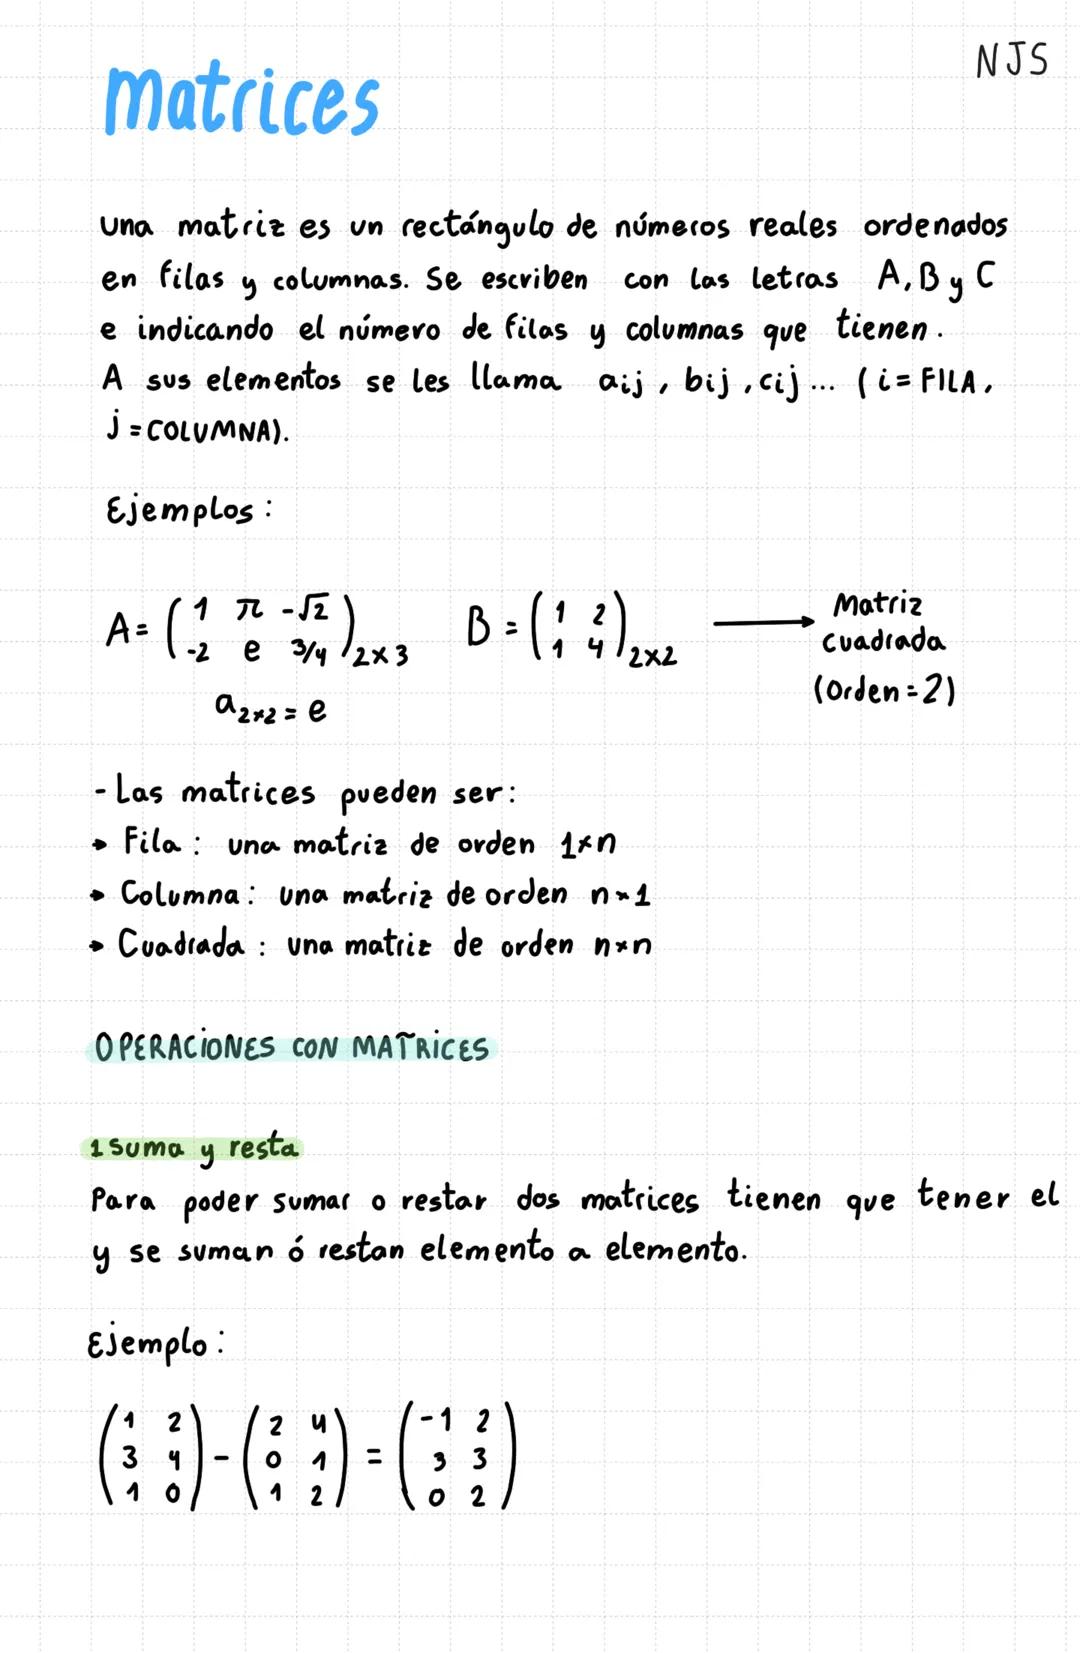 NJS
matrices
una matriz es un rectángulo de números reales ordenados
en filas y columnas. Se escriben con las letras A, B y C
e indicando el número de filas y columnas que tienen.
A sus elementos se les llama aij, bij, cij... (i = FILA,
j = COLUMNA).
Ejemplos:
A = ( 1 π -√2 ) B = ( 1 2 ) ⟶ Matriz
( -2 e 3/4 )2×3 ( 1 4 )2×2 cuadrada
a2×2 = e (Orden = 2)
- Las matrices pueden ser:
→ Fila: una matriz de orden 1×n
→ Columna: una matriz de orden n×1
→ Cuadrada: una matriz de orden n×n
OPERACIONES CON MATRICES
1 Suma y resta
Para poder sumar o restar dos matrices tienen que tener el
y se suman ó restan elemento a elemento.
Ejemplo:
( 1 2 ) ( 2 4 ) ( -1 2 )
( 3 4 ) - ( 0 1 ) = ( 3 3 )
( 1 0 ) ( 1 2 ) ( 0 2 )